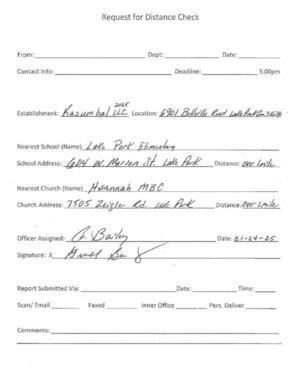 Request for Distance Check
From: Dept: Date:
Contact Info: Deadline: 5:00pm
2025
Establishment: Kasumbal LLC Location: 6901 Bellville Road Lake Park Ga. 31636
Nearest School (Name) Lake Park Elementary
School Address: 604 W. Marion St. Lake Park Distance: over 1 mile
Nearest Church (Name) Hosannah MBC
Church Address: 7505 Zeigler Rd. Lake Park Distance: over 1 mile
Officer Assigned: Bailey Date: 01-24-25
Signature: X
Report Submitted Via: Date: Time:
Scan/ Email Faxed Inner Office Pers. Deliver
Comments: